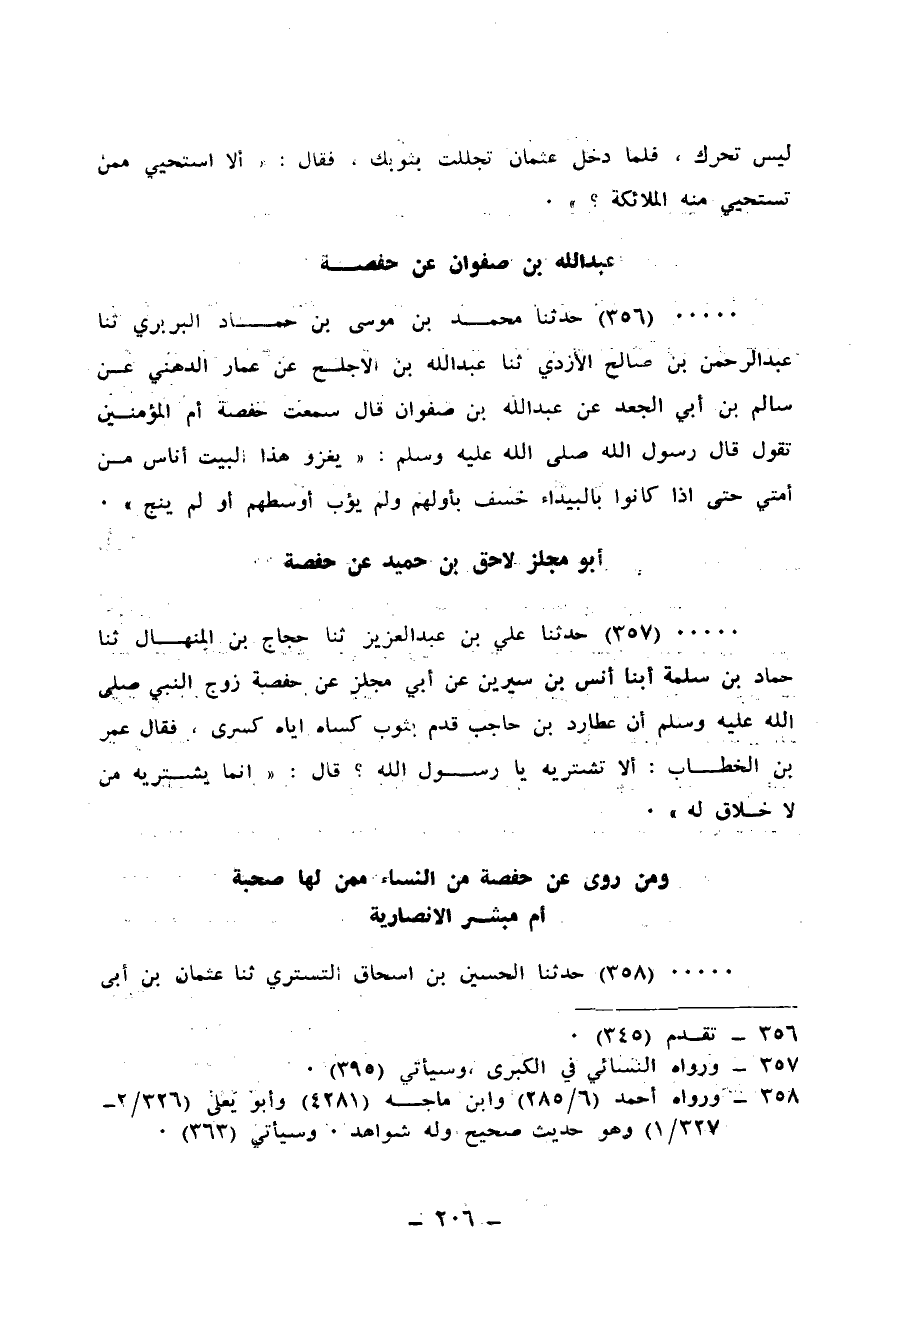 ليس تحرك ، فلما دخل عثمان تجللت بثوبك ، فقال : « ألا استحيي ممن
تستحيي منه الملائكة ؟ » ٠
عبدالله بن صفوان عن حفصـــة
٠٠٠٠٠ (٣٥٦) حدثنا محمـــد بن موسى بن حمـــاد البربري ثنا
عبدالرحمن بن صالح الأزدي ثنا عبدالله بن الاجلـح عن عمار الدهني عـن
سالم بن أبي الجعد عن عبدالله بن صفوان قال سمعت حفصة أم المؤمنـين
تقول قال رسول الله صلى الله عليه وسلم : « يغزو هذا البيت أناس مـن
أمتي حتى اذا كانوا بالبيداء خسف بأولهم ولم يؤب أوسطهم أو لم ينج » ٠
أبو مجلز لاحق بن حميد عن حفصة
٠٠٠٠٠ (٣٥٧) حدثنا علي بن عبدالعزيز ثنا حجاج بن المنهـــال ثنا
حماد بن سلمة أبنا أنس بن سيرين عن أبي مجلز عن حفصة زوج النبي صلى
الله عليه وسلم أن عطارد بن حاجب قدم بثوب كساه اياه كسرى ، فقال عمر
بن الخطـــاب : ألا تشتريه يا رســـول الله ؟ قال : « انما يشـــتريه من
لا خـلاق له » ٠
ومن روى عن حفصة من النساء ممن لها صحبة
أم مبشـر الانصارية
٠٠٠٠٠ (٣٥٨) حدثنا الحسين بن اسحاق التستري ثنا عثمان بن أبي
٣٥٦ ــ تقـدم (٣٤٥) ٠
٣٥٧ ــ ورواه النسائي في الكبرى ،وسيأتي (٣٩٥) ٠
٣٥٨ ــ ورواه أحمد (٢٨٥/٦) وابن ماجـــه (٤٢٨١) وأبو يعلى (٢/٣٢٦ــ
١/٣٢٧) وهو حديث صحيح وله شواهد ٠ وسيأتي (٣٦٣) ٠
ــ ٢٠٦ ــ